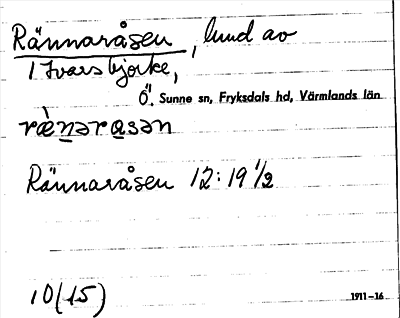 Rännaråsen, lund av
1 Ivarsbjörke,
Ö. Sunne sn, Fryksdals hd, Värmlands län
ræ̀nəråsən
Rännaråsen 12:19 1/2
10(15)
1911–16